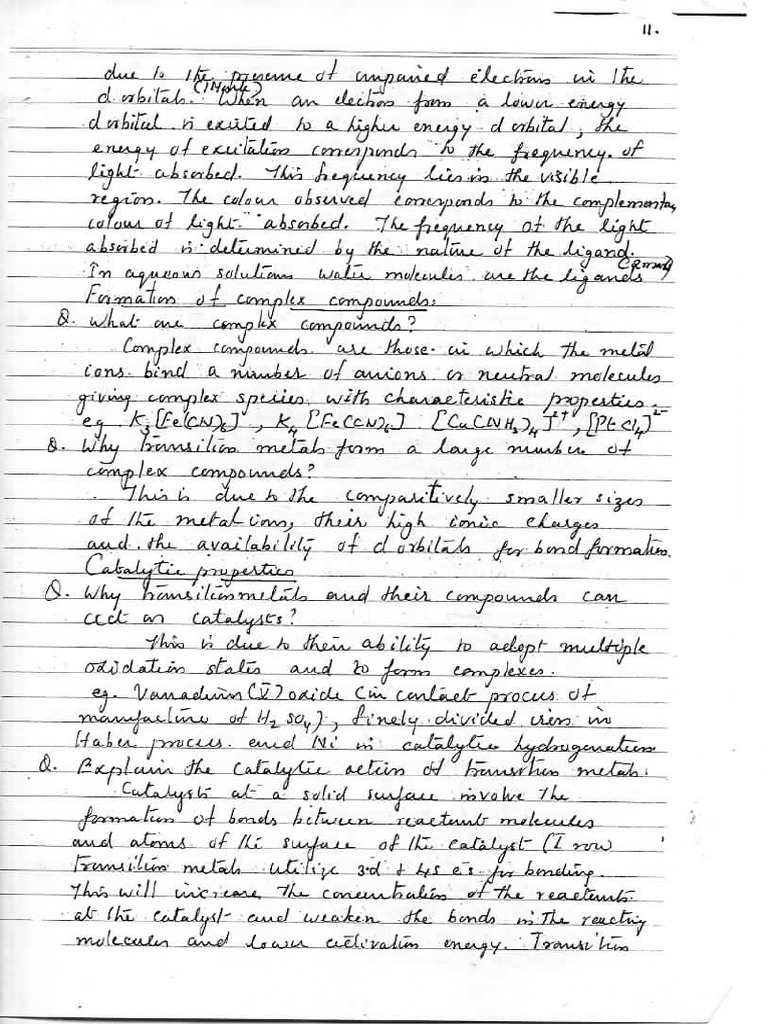 11.
due to the presence of unpaired electrons in the
d orbitals. (1 Mark) When an electron from a lower energy
d orbital is excited to a higher energy d orbital, the
energy of excitation corresponds to the frequency of
light absorbed. This frequency lies in the visible
region. The colour observed corresponds to the complementary
colour of light absorbed. The frequency of the light
absorbed is determined by the nature of the ligand.
In aqueous solutions water molecules are the ligands
Formation of complex compounds:
Q. What are complex compounds?
Complex compounds are those in which the metal
ions bind a number of anions or neutral molecules
giving complex species with characteristic properties.
eg. K3[Fe(CN)6], K4[Fe(CN)6] [Cu(NH3)4]2+, [PtCl4]2-
Q. Why transition metals form a large number of
complex compounds?
This is due to the comparitively smaller sizes
of the metal ions, their high ionic charges
and the availability of d orbitals for bond formation.
Catalytic properties
Q. Why transition metals and their compounds can
act as catalysts?
This is due to their ability to adopt multiple
oxidation states and to form complexes.
eg. Vanadium(V) oxide (in contact process of
manufacture of H2SO4), finely divided iron in
Haber process and Ni in catalytic hydrogenation
Q. Explain the catalytic action of transition metals.
Catalysts at a solid surface involve the
formation of bonds between reactant molecules
and atoms of the surface of the catalyst (I row
transition metals utilize 3d & 4s e's for bonding.
This will increase the concentration of the reactants
at the catalyst and weaken the bonds in the reacting
molecules and lower activation energy. Transition